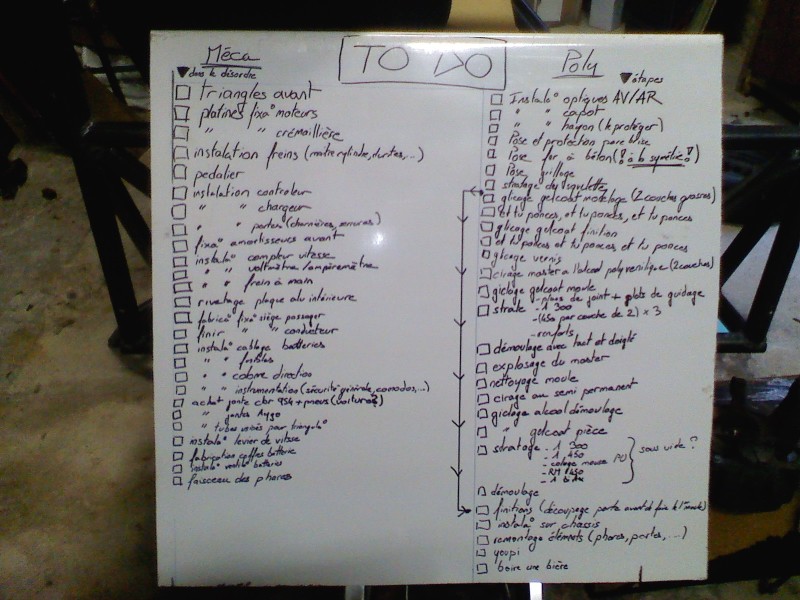 Méca
TO DO
Poly
▼dans le désordre
▼étapes
triangles avant
platines fixa° moteurs
" " crémaillière
instalation freins (maitre cylindre, durites,...)
pedalier
instalation controleur
" " chargeur
" " portes (charnières, serrures)
fixa° amortisseurs avant
instala° compteur vitesse
" " voltmètre/ampèremètre
" " frein à main
rivetage plaque alu intérieure
fabrica° fixa° siège passager
finir " " conducteur
instala° cablage batteries
" " fusibles
" " colonne direction
" " instrumentation (sécurité générale, comodos,...)
achat jante cbr 954 + pneus (voiture?)
" jantes Aygo
" tubes usinés pour triangula°
instala° levier de vitesse
fabrication coffres batterie
instala° ventila° batteries
faisceau des phares
Instala° optiques AV/AR
" " capot
" " hayon (le protéger)
Pose et protection pare brise
Pose fer à béton (! à la symétrie!)
Pose grillage
stratage du squelette
glicage gelcoat modelage (2 couches grasses)
et tu ponces, et tu ponces, et tu ponces
glicage gelcoat finition
et tu ponces et tu ponces et tu ponces
glicage vernis
cirage master à l'alcool polyvenilique (2 couches)
giclage gelcoat moule
- plans de joint + plots de guidage
strate - 1 300
- (450 par couche de 2) x 3
- renforts
démoulage avec tact et doigté
explosage du master
nettoyage moule
cirage au semi permanent
giclage alcool démoulage
" gelcoat pièce
stratage - 1 300
- 1 450
- collage mousse PU
- RM 450
- 1
sous vide?
démoulage
finitions (découpage porte avant de faire le moule)
instala° sur chassis
remontage éléments (phares, portes,...)
youpi
boire une bière